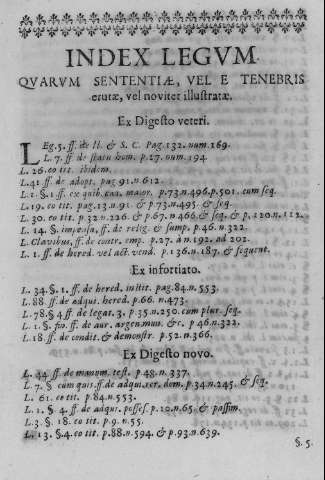 INDEX LEGVM
QVARVM SENTENTIÆ, VEL E TENEBRIS
erutæ, vel noviter illustratæ.
Ex Digesto veteri.
LEg. 5. ff. de ll. & S. C. Pag. 132. num. 169.
L. 7. ff. de statu hom. p. 27. num. 194.
L. 26. eo tit. ibidem.
L. 41 ff. de adopt. pag 91. n. 612.
L. 1. §. 1 ff. ex quib. cau. maior. p. 73. n. 496. p. 501. cum seq.
L. 19. eo tit. pag. 13. n. 91. & p. 73. n. 495. & seq.
L. 30. eo tit. p. 32. n. 226. & p. 67. n. 466. & seq. & p. 120. n. 112.
L. 14. §. impensa, ff. de relig. & sump. p. 46. n. 322.
L. Clavibus, ff. de contr. emp. p. 27. à n. 192. ad 202.
L. 1. ff. de hered. vel act. vend. p. 136. n. 187. & sequent.
Ex infortiato.
L. 34. §. 1. ff. de hered. instit. pag. 84. n. 553.
L. 88. ff. de adqui. hered. p. 66. n. 473.
L. 78. § 4 ff. de legat. 3. p 35. n. 250. cum plur. seq.
L. 1. §. fin. ff. de aur. argen. mun. &c. p 46. n. 322.
L. 18. ff. de condit. & demonstr. p. 52. n. 366.
Ex Digesto novo.
L. 44. ff. de manum. test. p. 48. n. 337.
L. 7. § cum quis. ff. de adqu. rer. dom. p. 34. n. 245. & seq.
L. 61. eo tit. p. 84. n. 553.
L. 1. § 4. ff. de adqui. posses. p. 10. n. 65. & passim.
L. 3. §. 18. eo tit. p. 9. n. 55.
L. 13. §. 4. eo tit. p. 88. n. 594. & p. 93. n. 639.
§. 5.